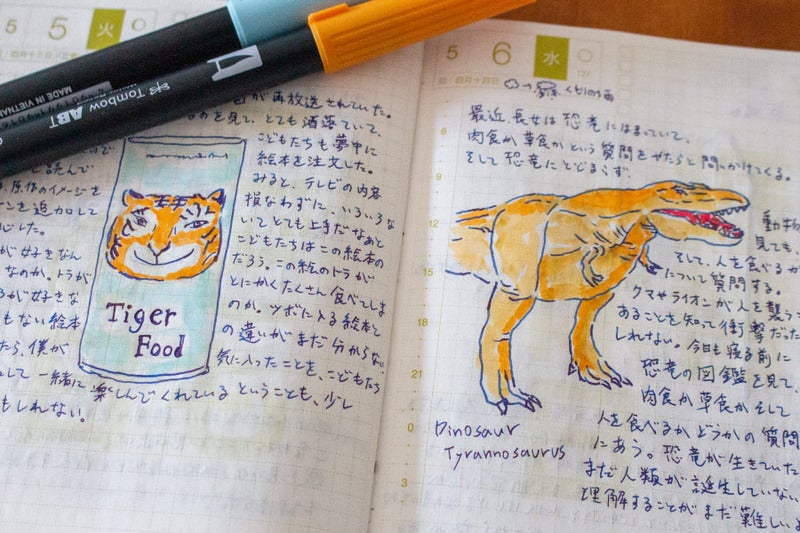 5
5
火
MADE IN VIETNAM
Tombow ABT
が再放送されていた。
を見て、とても洒落ていて、
こどもたちも夢中に
読んで
絵本を注文した。
原作のイメージを
みると、テレビの内容
ーンを追加して
損なわずに、いろいろな
心した。
いてとても上手だなあと
が好きなん
こどもたちはこの絵本の
なのか、トラが
だろう。この絵のトラが
るが好きな
とにかくたくさん食べてしま
もない絵本
のか。ツボに入る絵本と
たら、僕が
の違いがまだ分からない
気に入ったことを、こどもたち
して一緒に楽しんでくれているということも、少し
もしれない。
Tiger
Food
5
6
水
127
くもり時々雨
最近長女は恐竜にはまっていて、
肉食か草食かという質問をやたらと問いかけてくる。
そして恐竜にとどまらず
動物
見ても、
そして、人を食べるか
について質問する。
クマやライオンが人を襲う
あることを知って衝撃だった
しれない。今日も寝る前に
恐竜の図鑑を見て、
肉食か草食かそして
人を食べるかどうかの質問
にあう。恐竜が生きていた
まだ人類が誕生していない
理解することがまだ難しいよ
Dinosaur
Tyrannosaurus
9
12
15
18
21
0
3